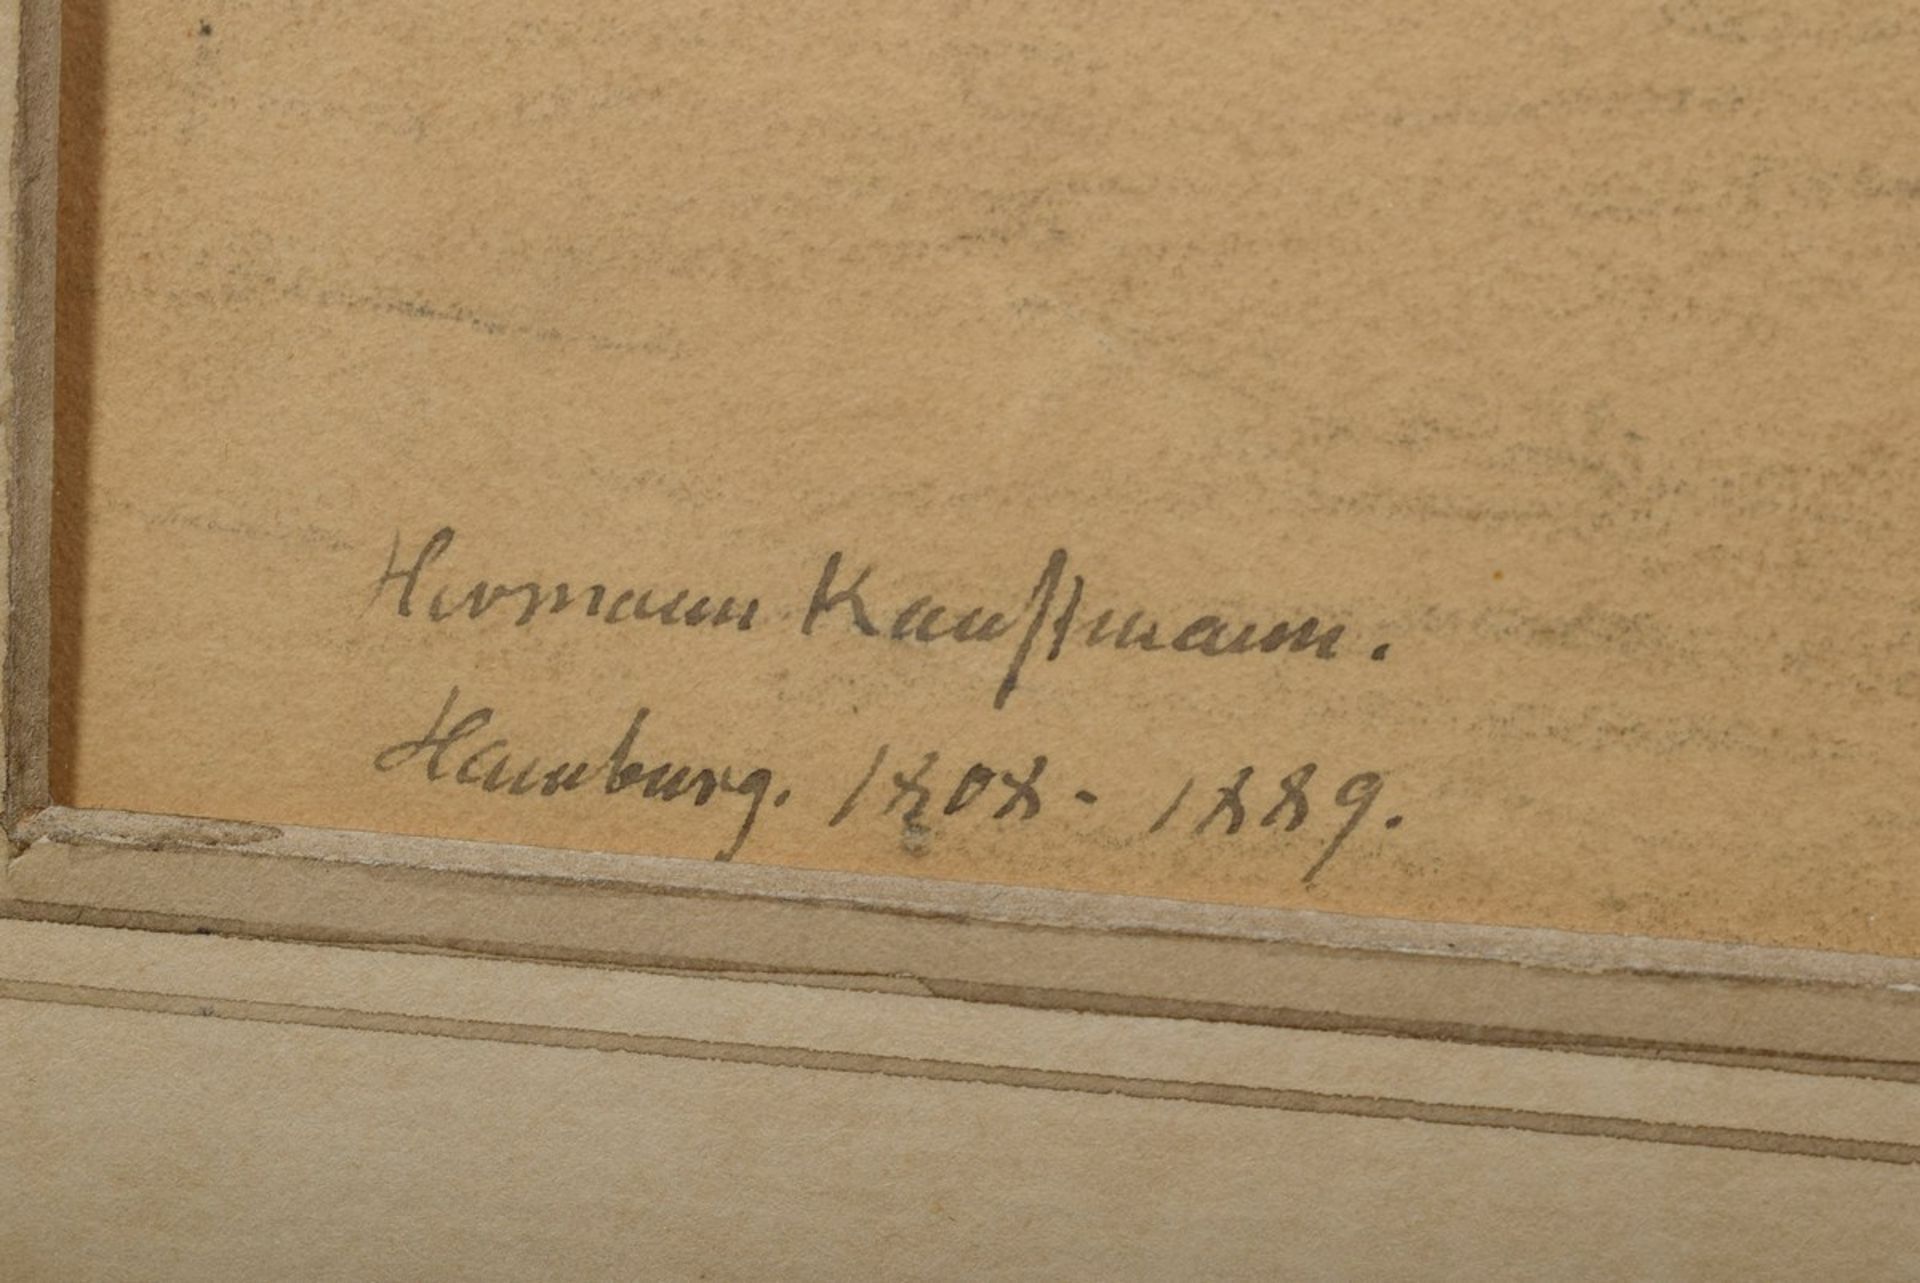 Hermann Kauffmann.
Hamburg. 1808 - 1889.